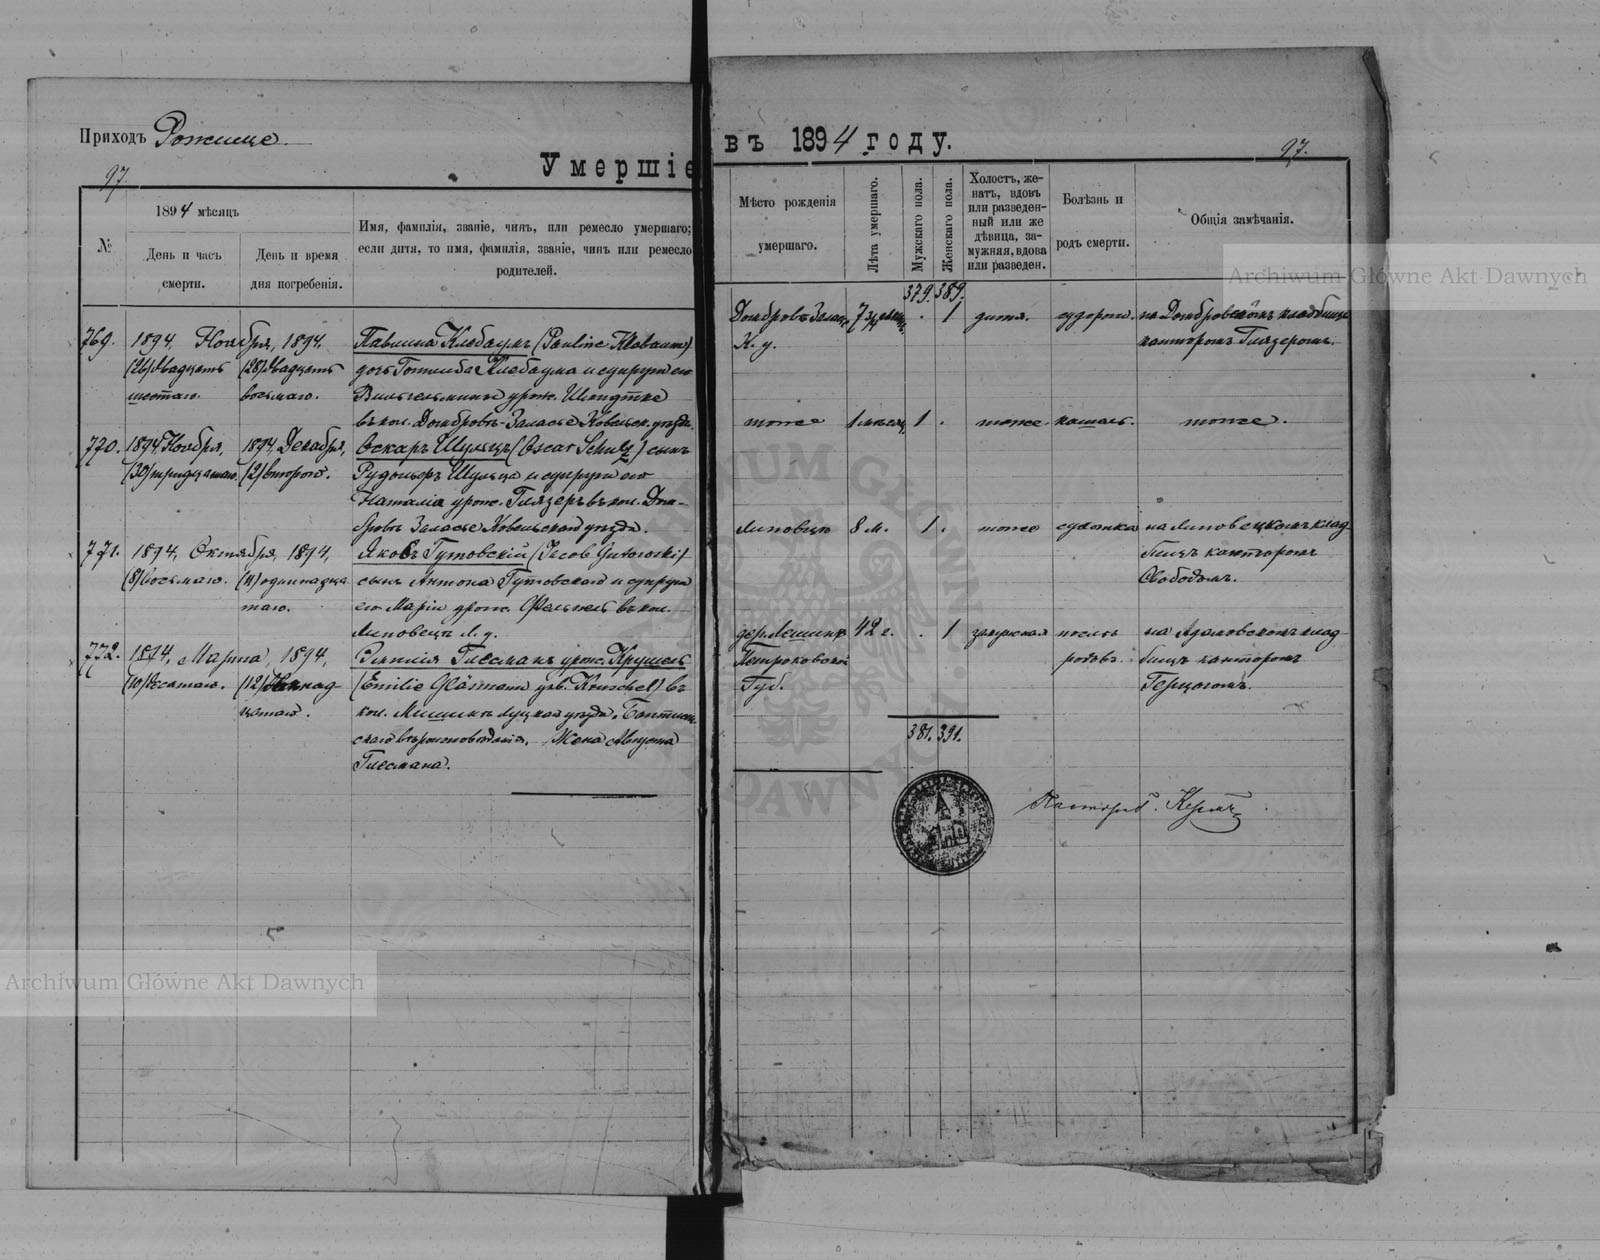 Приходъ Рожище.
Умершіе
въ 1894 году.
97.
97.
№
1894 мѣсяцъ
День и часъ
смерти.
День и время
дня погребенія.
Имя, фамилія, званіе, чинъ, или ремесло умершаго;
если дитя, то имя, фамилія, званіе, чинъ или ремесло
родителей.
Мѣсто рожденія
умершаго.
Лѣта умершаго.
Мужскаго пола.
Женскаго пола.
Холостъ, же-
натъ, вдовъ
или разведен-
ный или же
дѣвица, за-
мужняя, вдова
или разведен.
Болѣзнь и
родъ смерти.
Общія замѣчанія.
379. 389.
769.
1894 Ноября, 1894.
(26) двадцать
шестаго.
(28) двадцать
восьмаго.
Павлина Клебаумъ (Pauline Klebaum)
дочь Готлиба Клебаума и супруги его
Вильгельмины урож. Шмидтке
въ кол. Домбровъ-Заласье Ковельск. уѣзда.
К. у.
. 1
дитя.
судороги.
на Домбровскомъ кладбищѣ
канторомъ Глязеромъ.
770.
1894 Ноября,
(30) тридцатаго.
1894 Декабря,
(2) втораго.
Оскаръ Шульцъ (Oscar Schulz) сынъ
Рудольфа Шульца и супруги его
Наталіи урож. Глязеръ въ кол. Дом-
бровъ Заласье Ковельскаго уѣзда.
тоже
1 мѣсяц.
1 .
тоже.
кашель.
тоже.
771.
1894, Октября, 1894,
(8) восьмаго.
(11) одиннадца-
таго.
Яковъ Гутовскій (Jacob Gutowski)
сынъ Антона Гутовскаго и супруги
его Маріи урож.
въ кол.
Липовецъ Л. у.
Липовецъ
8 м.
1 .
тоже
сухотка
на Липовецкомъ клад-
бищѣ канторомъ
Свободомъ.
772.
1894, Марта, 1894,
(10) десятаго.
(12)
цатаго.
Эмилія Глесманъ урож. Крушель
(Emilie Gläsmann geb. Kruschel) въ
кол.
Луцкаго уѣзда. Баптист-
скаго вѣроисповѣданія. Жена Августа
Глесмана.
дер.
Петроковской
Губ.
42 г.
. 1
замужняя
послѣ
родовъ.
на Адамовскомъ клад-
бищѣ канторомъ
Герцогомъ.
381. 391.
Пасторъ. Кернъ
Archiwum Główne Akt Dawnych
Archiwum Główne Akt Dawnych